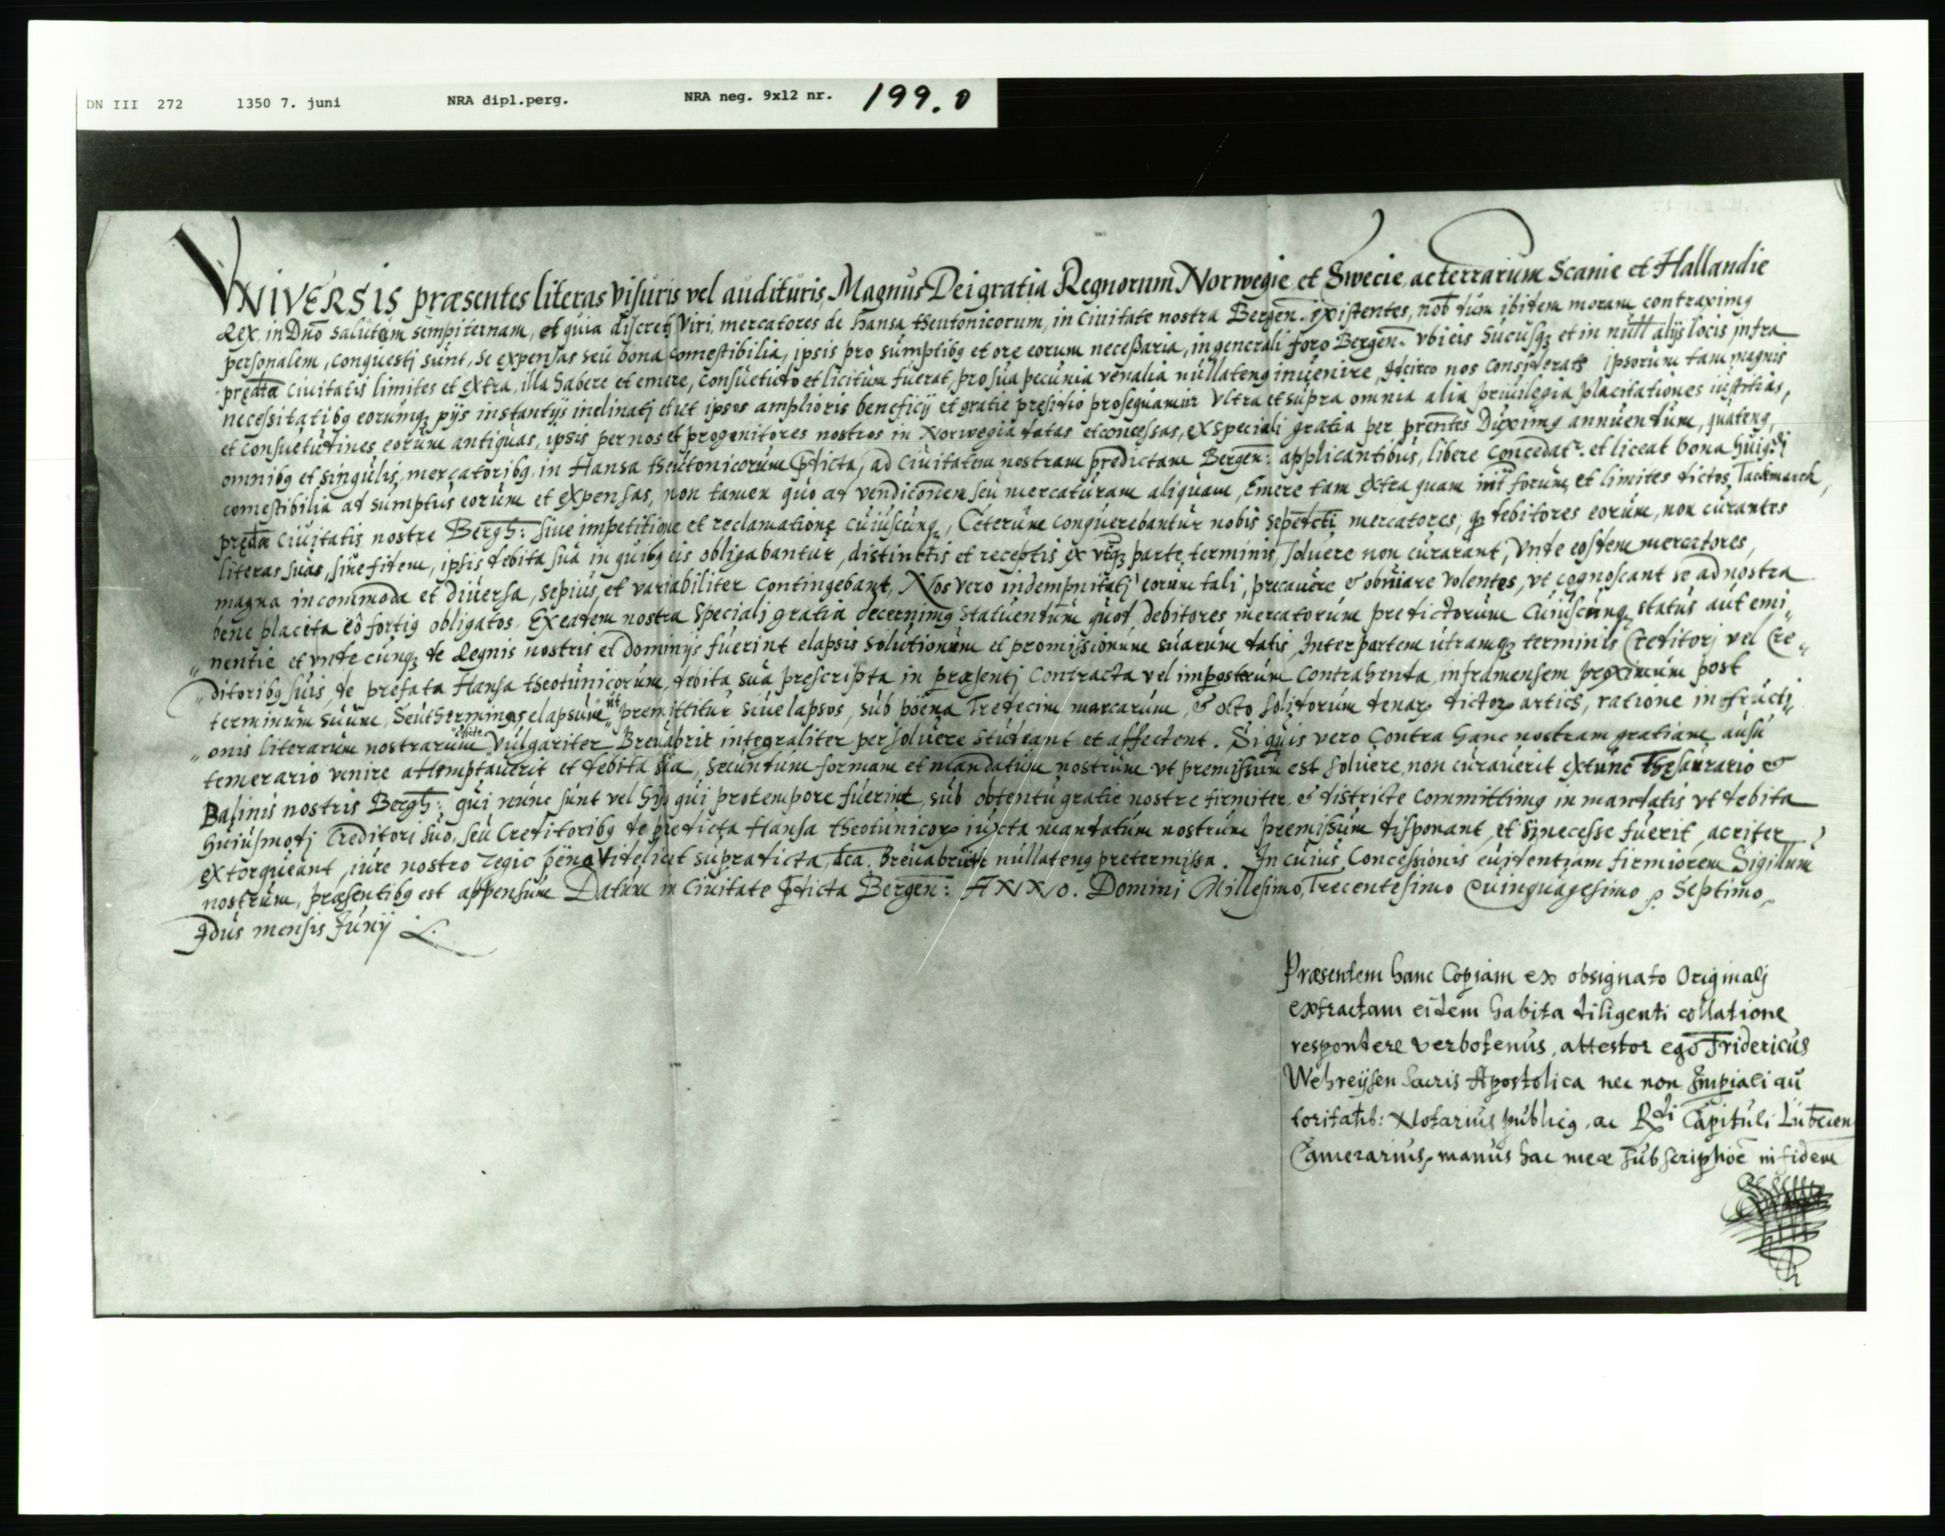 DN III 272 1350 7. juni NRA dipl.perg. NRA neg. 9x12 nr. 199.0
VNIVERSIS præsentes literas Visuris vel audituris, Magnus Dei gratia Regnorum Norwegie et Swecie, ac terrarum Scanie et Hallandie
Rex, in Dno salutem sempiternam, et quia discretj Viri, mercatores de hansa theutonicorum, in Ciuitate nostra Bergen. existentes, nob dum ibidem moram contraximg
personalem, conquestj sunt, se expensas seu bona comestibilia, ipsis pro sumptibg et ore eorum necessaria, in generali foro Bergen: vbi eis sucusqz et in null alijs locis infra
predtæ Ciuitatis limites et extra, illa habere et emere, consuetudo et licitum fuerat, pro sua pecunia venalia nullateng inuenire, Idcirco nos Considerats Ipsorum tam magnis
necessitatibg eorumqz pijs instantijs inclinatj et ut ipsos amplioris beneficij et gratie presidio prosequamur Vltra et supra omnia alia priuilegia placitationes iustitias,
et consuetudines eorum antiquas, ipsis per nos et progenitores nostros in Norwegia datas et concessas, ex speciali gratia per prentes Duximg annuendum, quateng,
omnibg et singulis mercatoribg, in Hansa theutonicorum pdicta, ad Ciuitatem nostram predictam Bergen: applicantibus, libere Concedatr. et liceat bona huigdj
comestibilia ad sumptus eorum et expensas, non tamen quo ad vendiconem seu mercaturam aliquam, Emere tam extra quam infra forum et limites dictos, Tackmarck,
predæ Ciuitatis nostre Bergh: siue impetitione et reclamatione cuiuscunqz, Ceterum conquerebantur nobis sepedcti mercatores, qz debitores eorum, non curantes
literas suas, siue fidem, ipsis debita sua in quibg eis obligabantur, distinctis et receptis ex vtqz parte terminis, soluere non curarant, Vnde eosdem mercatores,
magna incommoda et diuersa, sepius, et variabiliter Contingebant, Nos vero indempnitatj eorum tali, precauere & obuiare volentes, vt cognoscant se ad nostra
bene placita eo fortig obligatos. Ex eadem nostra Specialj gratia decernimg statuendum quod debitores mercatorum predictorum Cuiuscunqz status aut emi„
„nentie et vnde cunqz de Regnis nostris et Dominijs fuerint elapsis solutionum et promissionum suarum datis, Inter partem utramqz terminis Creditorj vel Cre„
„ditoribg suis, de prefata Hansa theotunicorum, debita sua prescripta in præsentj Contracta vel imposterum Contrahenda, infra mensem proximum post
terminum suum, Seu terminos elapsum ut premittitur siue lapsos, sub pöena Tredecim marcarum, & octo solidorum denar dictor artics, ratione infructj„
„onis literarum nostrarum dicte Vulgariter Breuabrit integraliter persoluere studeant et affectent. Si quis vero Contra hanc nostram gratiam ausu
temerario venire attemptauerit et debita sua, secundum formam et mandatum nostrum vt premissum est soluere non curauerit extunc Thesaurario &
Baliuis nostris Bergh: qui nunc sunt vel hijs qui pro tempore fuerint, sub obtentu gratie nostre firmiter & districte committimg in mandatis vt debita
huiusmodj Creditori suo, seu Creditoribg de predicta Hansa theotunicor iuxta mandatum nostrum premissum disponant, et si necesse fuerit, acriter
extorqueant, iure nostro regio pöena Videlicet supradicta, dca. Breuabrut nullateng pretermissa. In cuius Concessionis euidentiam firmiorem Sigillum
nostrum, præsentibg est appensum Datum in Ciuitate pdicta Bergen: ANNO. Domini Millesimo, Trecentesimo Quinquagesimo, Septimo,
Idus mensis Junij
Præsentem hanc Copiam ex obsignato Originalj
extractam eidem habita diligenti collatione
respondere verbotenus, attestor ego Fridericus
Wehreijsen Sacris Apostolica nec non Impiali au
toritatib: Notarius publicg, ac Rdi Capituli Lubecen
Camerarius, manus hac mea subscriptioe in fidem